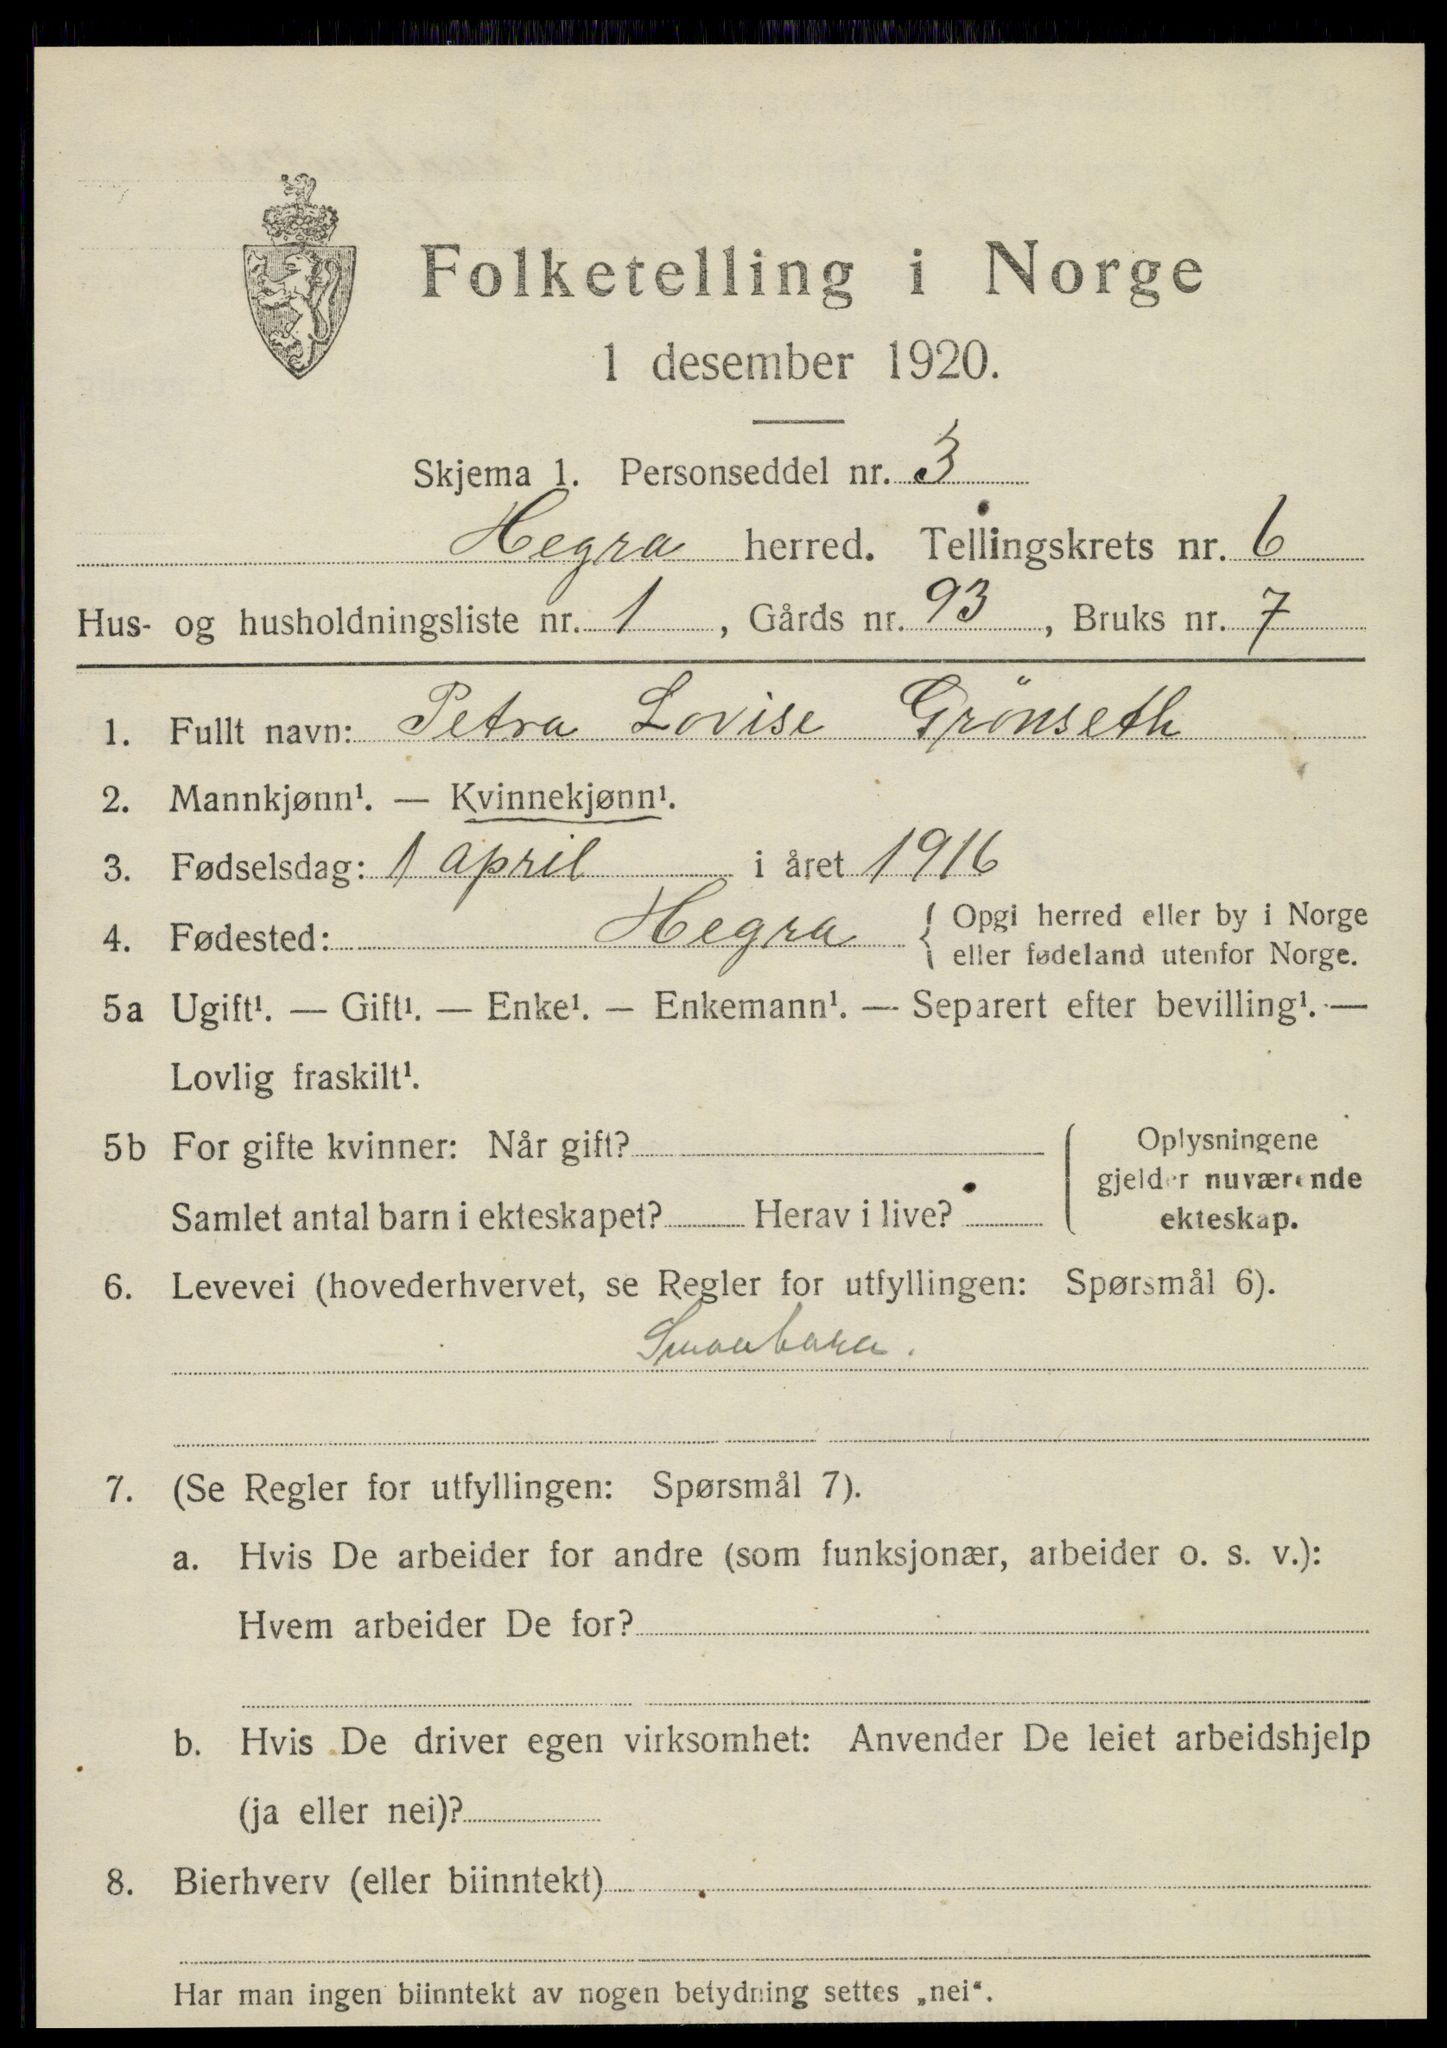 Folketelling i Norge
1 desember 1920.
Skjema 1. Personseddel nr. 3
Hegra herred. Tellingskrets nr. 6
Hus- og husholdningsliste nr. 1, Gårds nr. 93, Bruks nr. 7
1. Fullt navn: Petra Lovise Grönseth
2. Mannkjønn¹. — Kvinnekjønn¹.
3. Fødselsdag: 1 april i året 1916
4. Fødested: Hegra { Opgi herred eller by i Norge
eller fødeland utenfor Norge.
5a Ugift¹. — Gift¹. — Enke¹. — Enkemann¹. — Separert efter bevilling¹. —
Lovlig fraskilt¹.
5b For gifte kvinner: Når gift?
Samlet antal barn i ekteskapet? Herav i live?
Oplysningene
gjelder nuværende
ekteskap.
6. Levevei (hovederhvervet, se Regler for utfyllingen: Spørsmål 6).
Smaabarn.
7. (Se Regler for utfyllingen: Spørsmål 7).
a. Hvis De arbeider for andre (som funksjonær, arbeider o. s. v.):
Hvem arbeider De for?
b. Hvis De driver egen virksomhet: Anvender De leiet arbeidshjelp
(ja eller nei)?
8. Bierhverv (eller biinntekt)
Har man ingen biinntekt av nogen betydning settes „nei“.